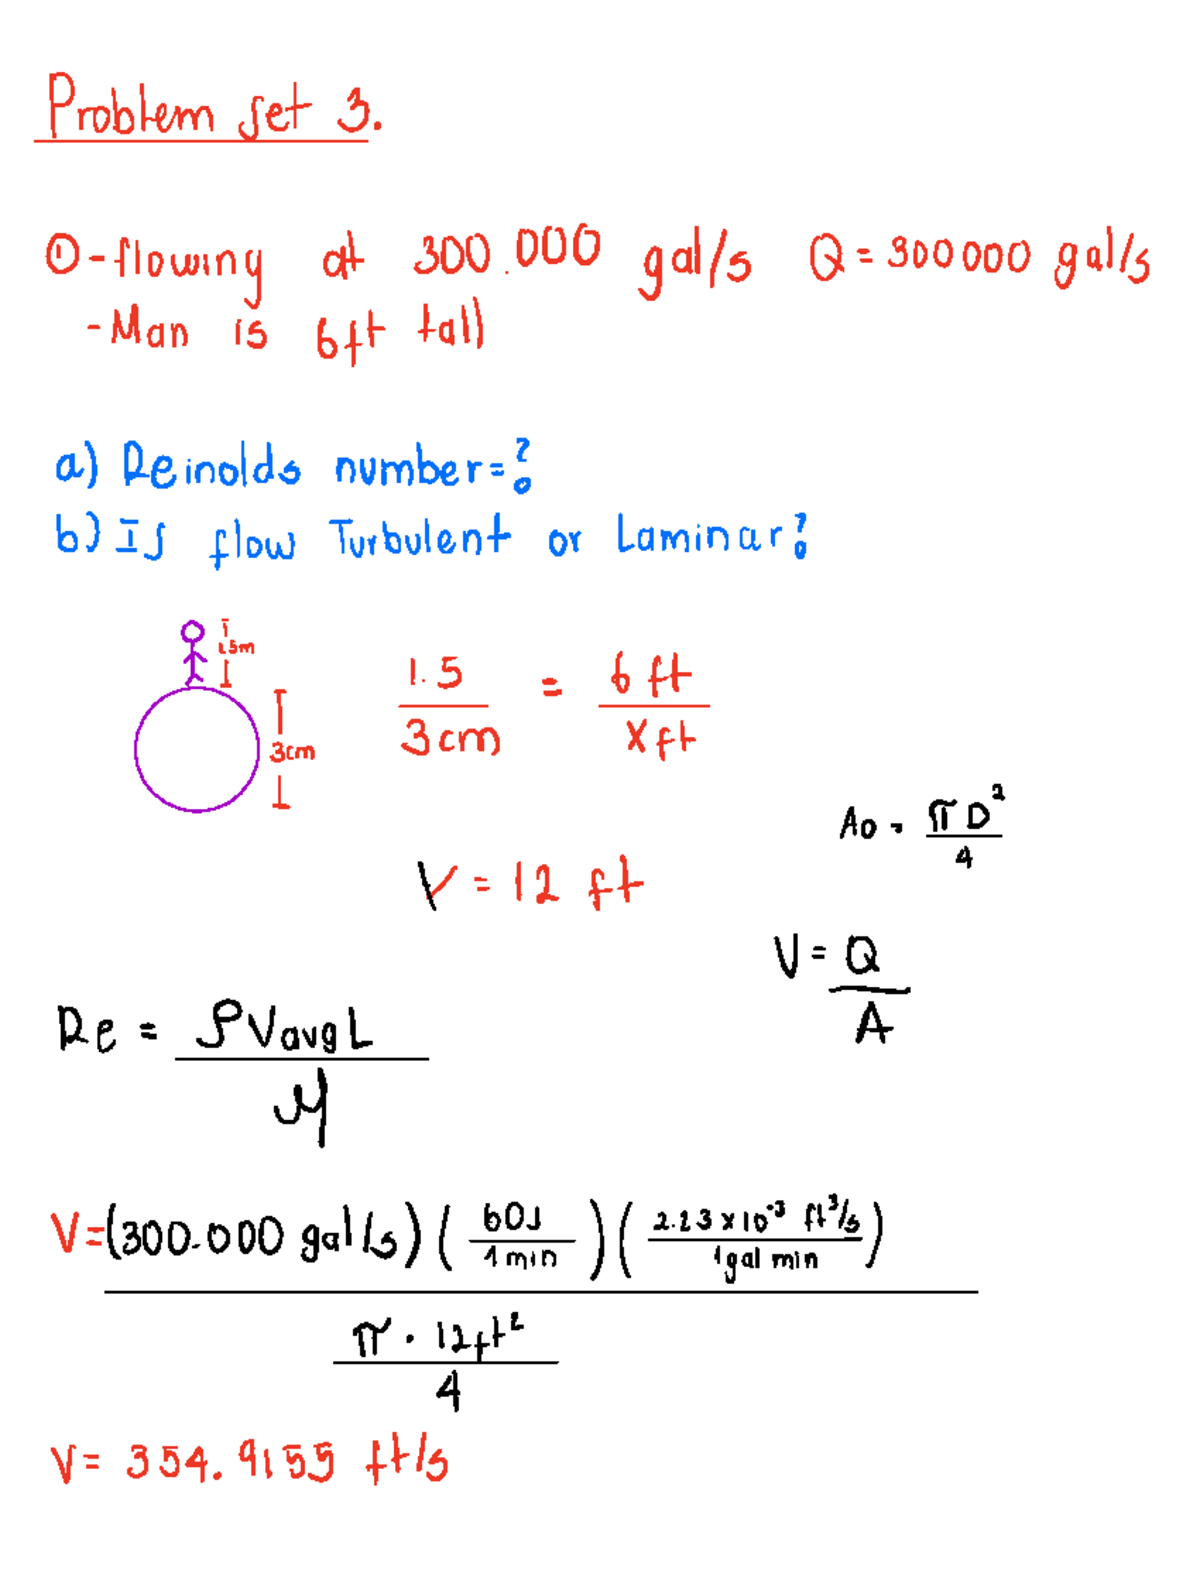 Problem set 3.
① - flowing at 300.000 gal/s Q = 300000 gal/s
- Man is 6ft tall
a) Reinolds number = ?
b) Is flow Turbulent or Laminar?
1.5m
3cm
1.5 / 3cm = 6 ft / X ft
X = 12 ft
Ao = πD² / 4
V = Q / A
Re = ρ Vavg L / μ
V = (300.000 gal/s) (60s / 1 min) (2.23 x 10⁻³ ft³/s / 1 gal min)
π · 12ft² / 4
V = 354.9155 ft/s